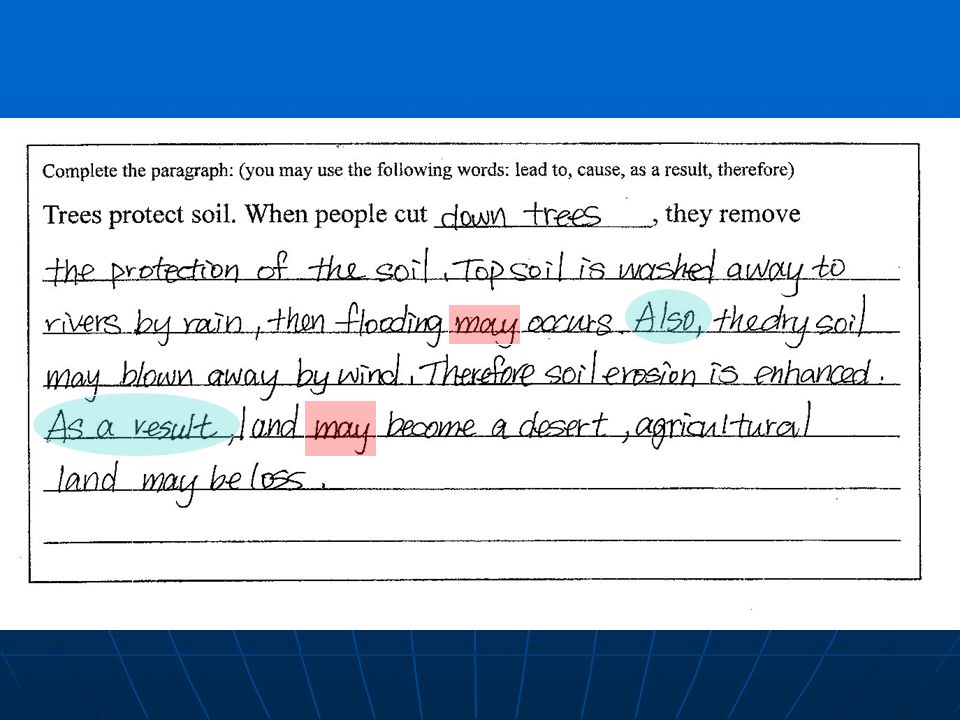 Complete the paragraph: (you may use the following words: lead to, cause, as a result, therefore)
Trees protect soil. When people cut down trees, they remove
the protection of the soil. Top soil is washed away to
rivers by rain, then flooding may occurs. Also, the dry soil
may blown away by wind. Therefore soil erosion is enhanced.
As a result, land may become a desert, agricultural
land may be loss.